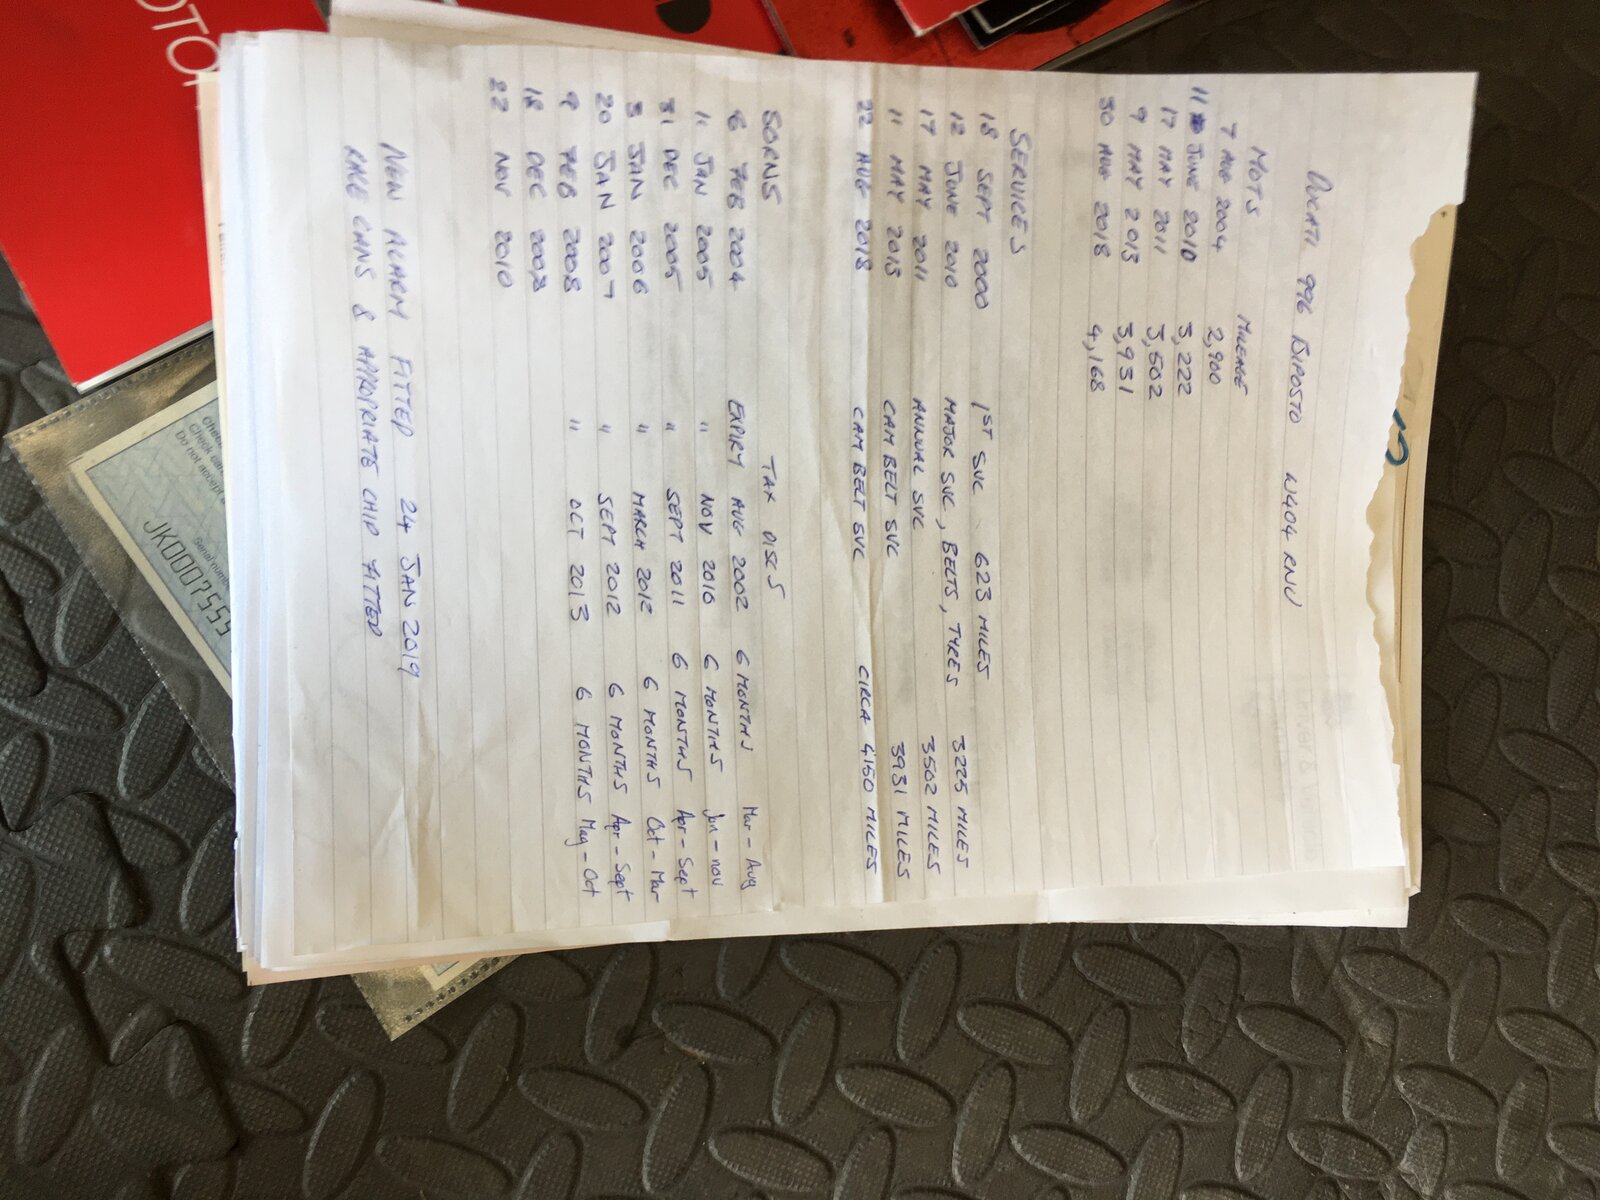 DUCATI 996 BIPOSTO W404 RNU
MOTS MILEAGE
7 AUG 2004 2,900
11 JUNE 2010 3,222
17 MAY 2011 3,502
9 MAY 2013 3,931
30 AUG 2018 4,168
SERVICES
18 SEPT 2000 1ST SVC 623 MILES
12 JUNE 2010 MAJOR SVC, BELTS, TYRES 3225 MILES
17 MAY 2011 ANNUAL SVC 3502 MILES
11 MAY 2013 CAM BELT SVC 3931 MILES
22 AUG 2018 CAM BELT SVC CIRCA 4150 MILES
SORNS TAX DISCS
6 FEB 2004 EXPIRY AUG 2002 6 MONTHS Mar - Aug
11 JAN 2005 " NOV 2010 6 MONTHS Jun - nov
31 DEC 2005 " SEPT 2011 6 MONTHS Apr - Sept
3 JAN 2006 " MARCH 2012 6 MONTHS Oct - Mar
20 JAN 2007 " SEPT 2012 6 MONTHS Apr - Sept
9 FEB 2008 " OCT 2013 6 MONTHS May - Oct
18 DEC 2008
22 NOV 2010
NEW ALARM FITTED 24 JAN 2019
RACE CANS & APPROPRIATE CHIP FITTED
OTOR
Check
Do not accept
Serial number
JK0007555